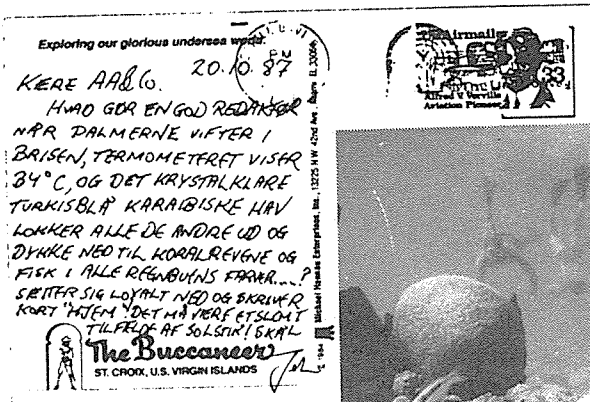 Exploring our glorious undersea world.
20.10.87
KÆRE AA & Co.
HVAD GØR EN GOD REDAKTØR
NÅR PALMERNE VIFTER I
BRISEN, TERMOMETERET VISER
34°C, OG DET KRYSTALKLARE
TURKISBLÅ KARAIBISKE HAV
LOKKER ALLE DE ANDRE UD OG
DYKKE NED TIL KORALREVENE OG
FISK I ALLE REGNBUENS FARVER....?
SÆTTER SIG LOYALT NED OG SKRIVER
KORT "HJEM". DET MÅ VÆRE ET SLEMT
TILFÆLDE AF SOLSTIK! SKÅL
The Buccaneer
ST. CROIX, U.S. VIRGIN ISLANDS
Enterprises, Inc., 13225 N.W. 42nd Ave.
1984
PM
Airmail
33
Alfred V. Verville
Aviation Pioneer